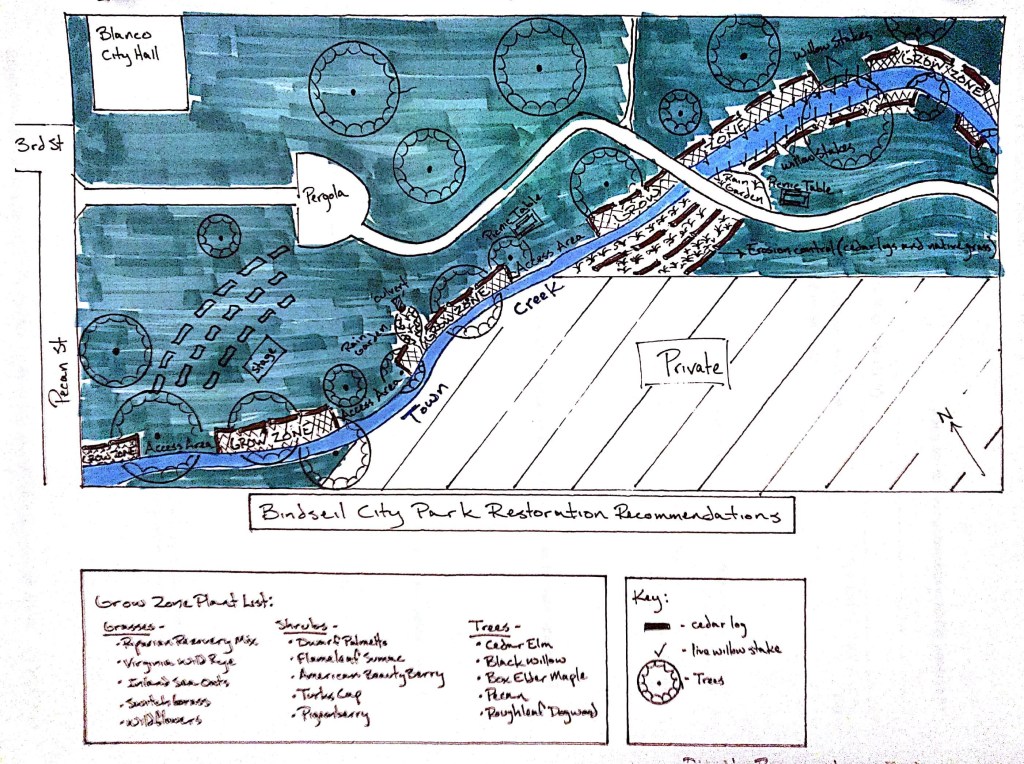 Blanco
City Hall
3rd St
Pecan St
Pergola
Stage
Picnic Table
Access Area
Culvert
Rain
Garden
GROW ZONE
Access Area
Access Area
GROW ZONE
GROW ZONE
GROW
ZONE
GROW ZONE
Willow Stakes
Willow Stakes
Rain
Garden
Picnic Table
Erosion control (cedar logs and native grass)
Town
Creek
Private
N
Bindseil City Park Restoration Recommendations
Grow Zone Plant List:
Grasses -
• Riparian Recovery Mix
• Virginia Wild Rye
• Inland Sea Oats
• Switch Grass
• Wildflowers
Shrubs -
• Dwarf Palmetto
• Flameleaf Sumac
• American Beauty Berry
• Turks Cap
• Pigeonberry
Trees -
• Cedar Elm
• Black Willow
• Box Elder Maple
• Pecan
• Roughleaf Dogwood
Key:
- cedar log
- live willow stake
- Trees